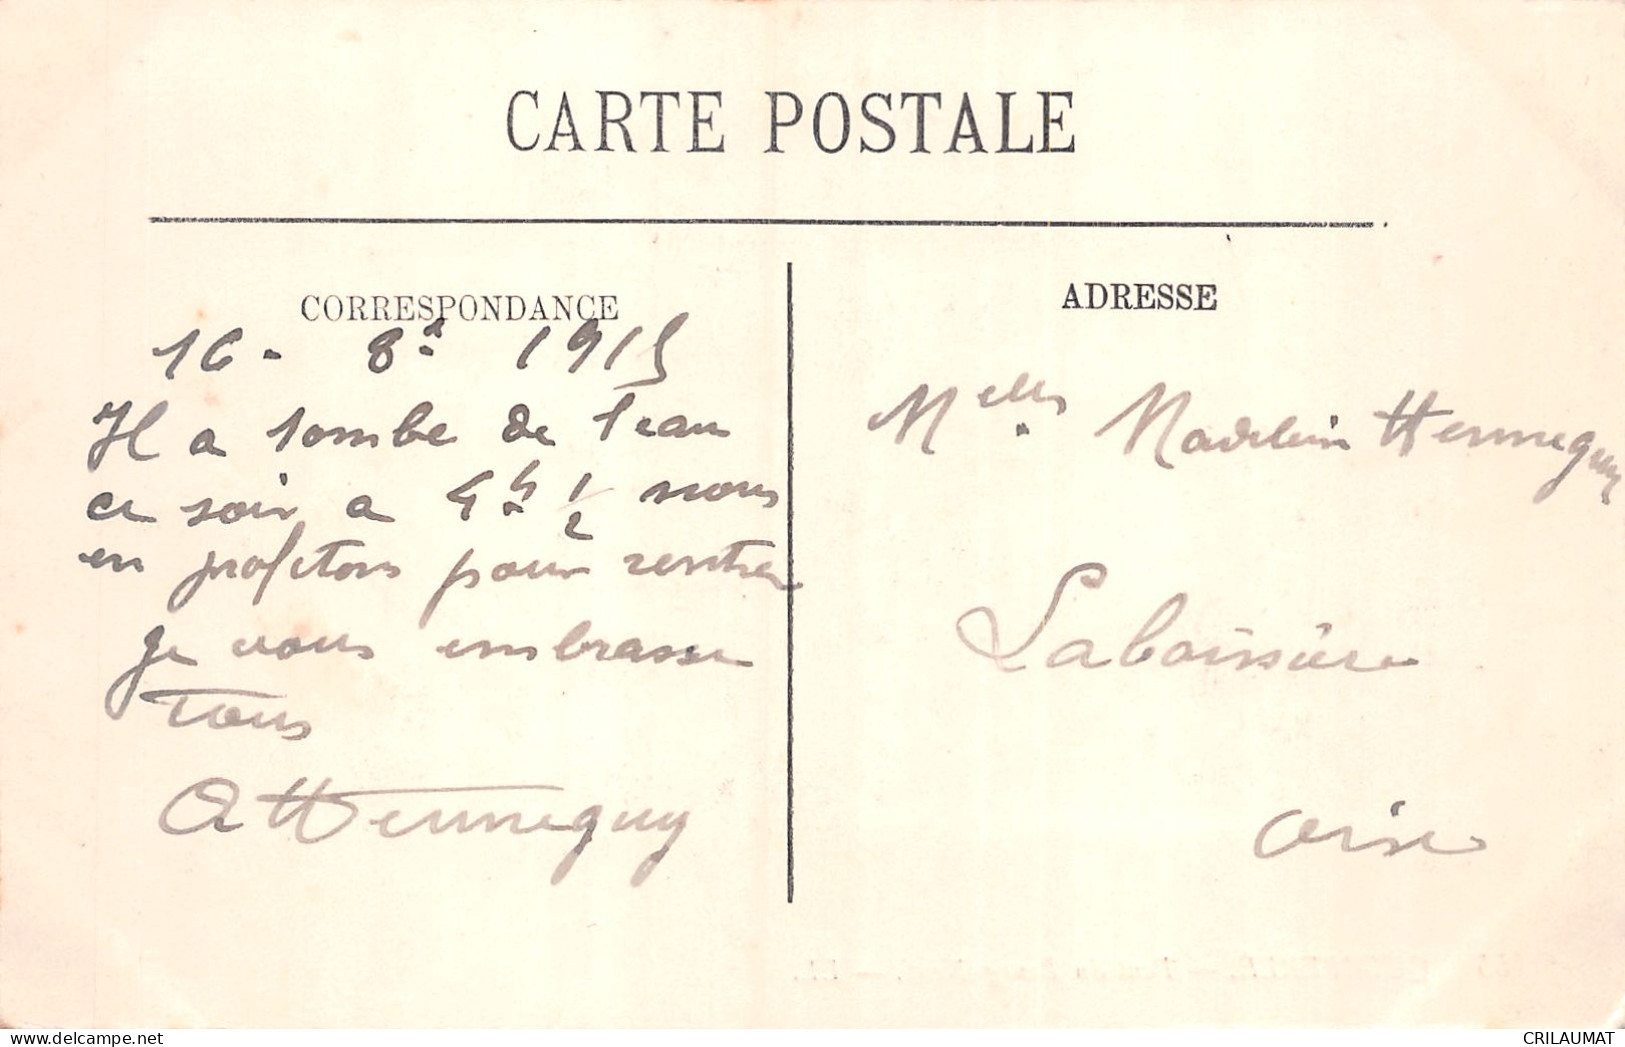 CARTE POSTALE
CORRESPONDANCE
16 - 8bre 1915
Il a tombe de l'eau
ce soir a 4h 1/2 nous
en profitons pour rentrer
Je vous embrasse
Tous
A Henneguy
ADRESSE
Melle Madeleine Henneguy
Laboissière
Oise
CRILAUMAT